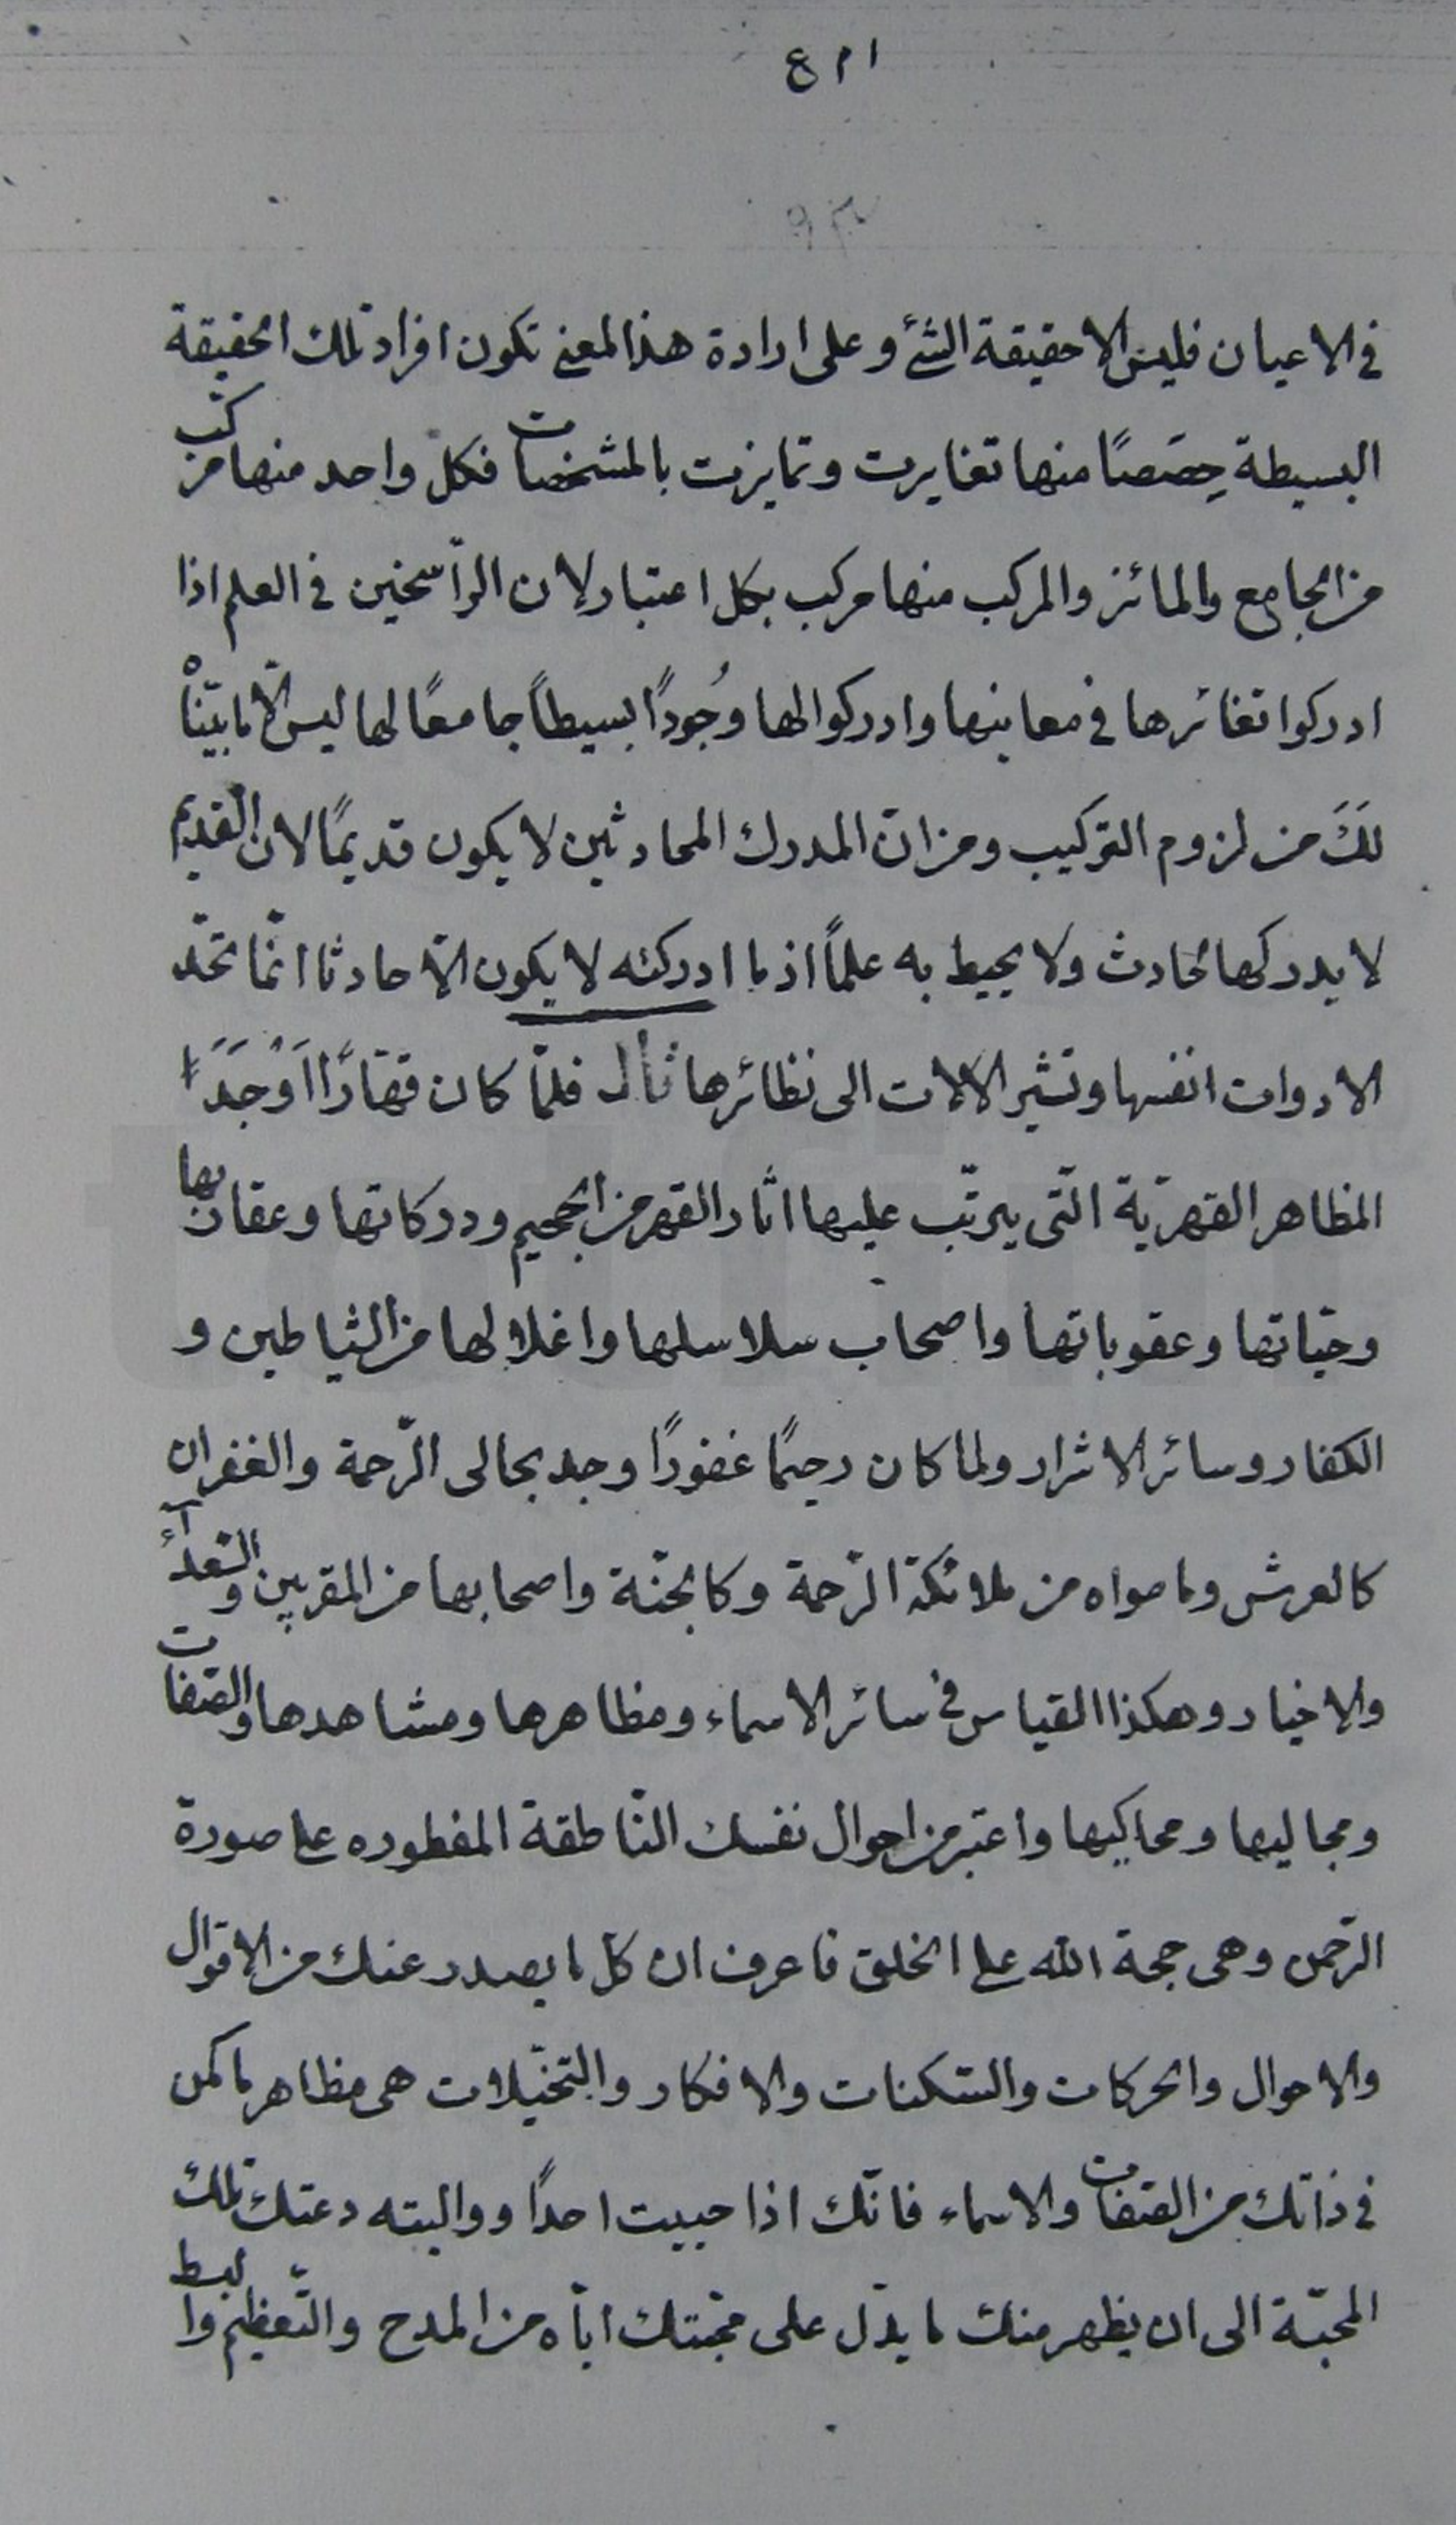 في الاعيان فليس الا حقيقة الشئ و على ارادة هذا المعنى تكون افراد تلك الحقيقة
البسيطة حِصَصًا منها تغايرت وتمايزت بالمشخصات فكل واحد منها مركب
من الجامع والمائز والمركب منها مركب بكل اعتبار لان الرّاسخين في العلم اذا
ادركوا تغائرها في معاينها وادركوا لها وُجُودًا بسيطاً جامعًا لها ليس الّا ما بيّناهْ
لَكَ من لزوم التركيب ومن انّ المدرك المحادثين لا يكون قديمًا لان القديم
لا يدركها لحادث ولا يحيط به علماً اذ ما ادركته لا يكون الّا حادثا انّما تحّد
الادوات انفسها وتشير الالات الى نظائرها قال فلمّا كان قهّارًا اَوْجَدَ
المظاهر القهريّة الّتى يترتّب عليها اثار القهر من الجحيم ودركاتها وعقاربها
وحيّاتها وعقوباتها واصحاب سلاسلها واغلالها من الشياطين و
الكفار وسائر الاشرار ولما كان رحيمًا غفورًا وجد مجالى الرّحمة والغفران
كالعرش وما حواه من ملائكة الرّحمة وكالجنّة واصحابها من المقربين والسّعدآء
والاخيار وهكذا القياس في سائر الاسماء ومظاهرها ومشاهدها والصّفات
ومجاليها ومحاكيها واعتبر من احوال نفسك النّاطقة المفطوره على صورة
الرّحمن وهى حجة الله على الخلق فاعرف ان كل ما يصدر عنك من الاقوال
والاحوال والحركات والسّكنات والافكار والتخيّلات هى مظاهر ما كمن
في ذاتك من الصّفات والاسماء فانّك اذا حببت احدًا وواليته دعتك تلك
المحبّة الى ان يظهر منك ما يدّل على محبّتك ايّاه من المدح والتّعظيم والبسط